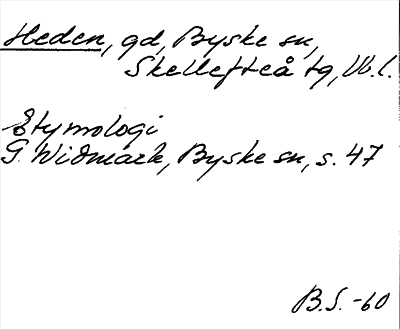 Heden, gd, Byske sn,
Skellefteå tg, Vb. l.
Etymologi
G. Widmark, Byske sn, s. 47
B.S. -60